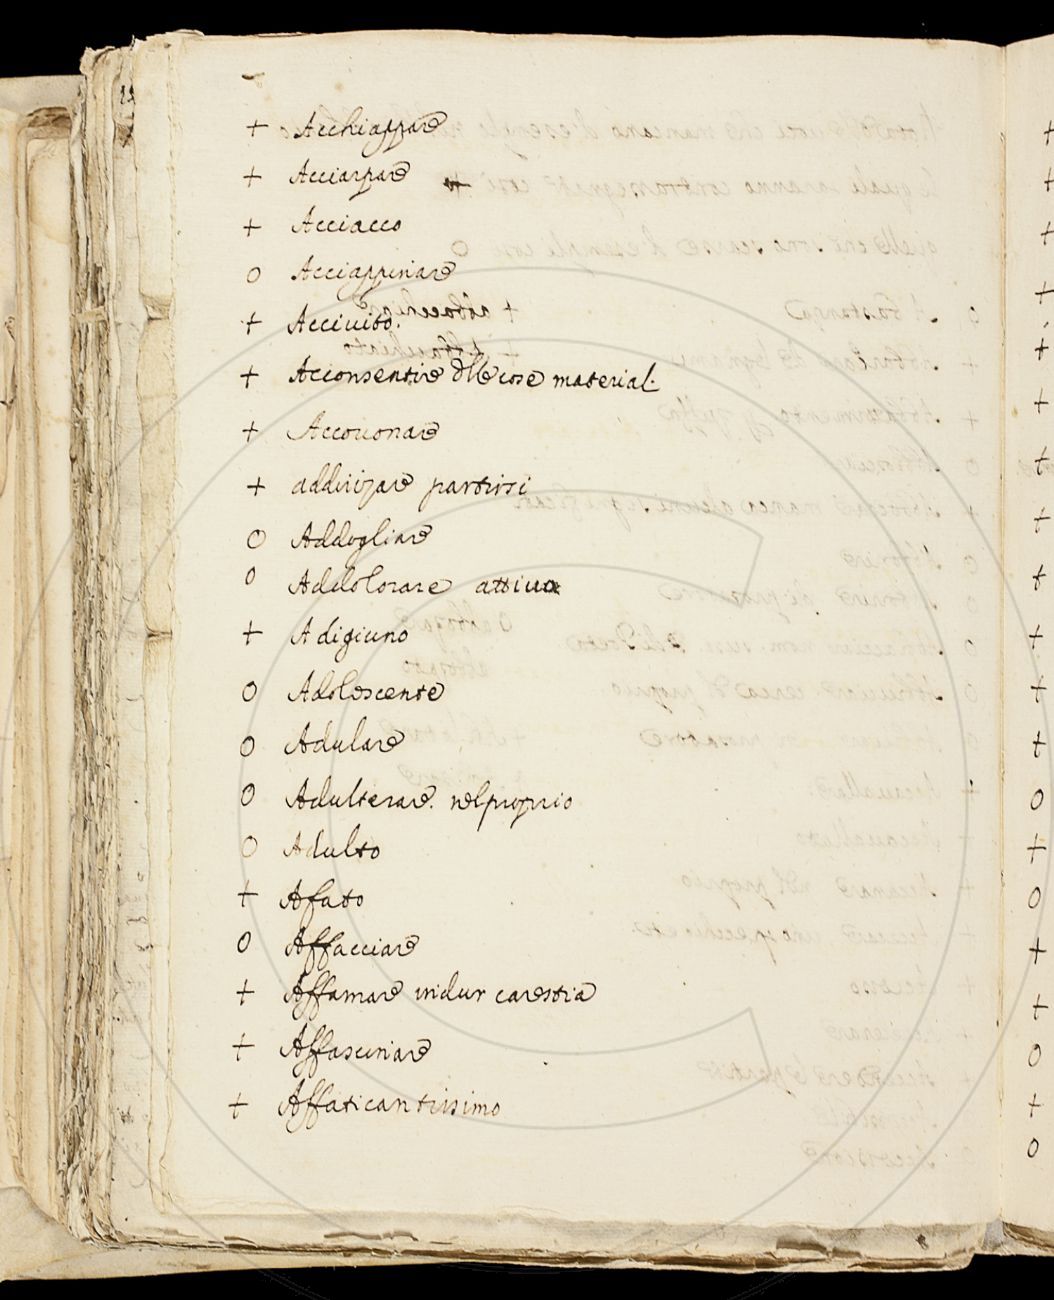 + Acchiappare
+ Acciarpare
+ Acciacco
o Acciappinare
+ Accivito.
+ Acconsentire delle cose material.
+ Accovonare
+ addirizzare partirsi
o Addogliare
o Addolorare attivo
+ A digiuno
o Adolescente
o Adulare
o Adulterare. nel proprio
o Adulto
+ Afato
o Affacciare
+ Affamare indur carestia
+ Affascinare
+ Affaticantissimo